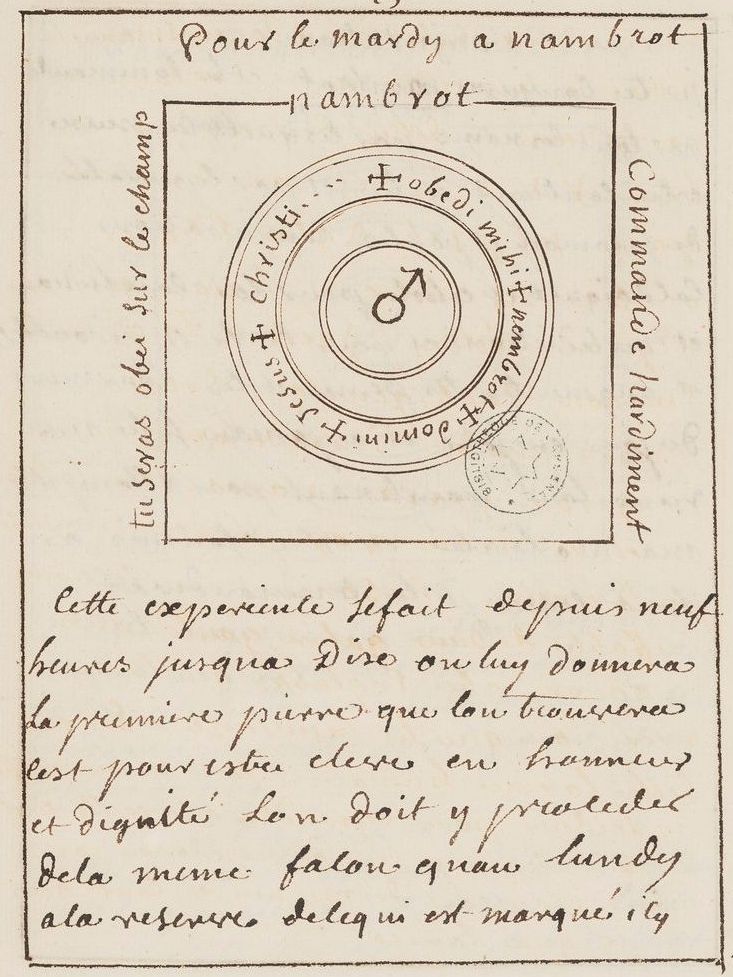 Pour le mardy a nambrot
nambrot
tu seras obei sur le champ
Commande hardiment
✝ obedi mihi ✝ nembrot ✝ domini ✝ Jesus ✝ christi....
Cette experience se fait depuis neuf
heures jusqua Dixe on luy donnera
La premiere pierre que lon trouvera
cest pour estre eleve en honneur
et dignité Lon doit y proceder
dela meme facon quau lundy
ala reserve de ce qui est marqué icy